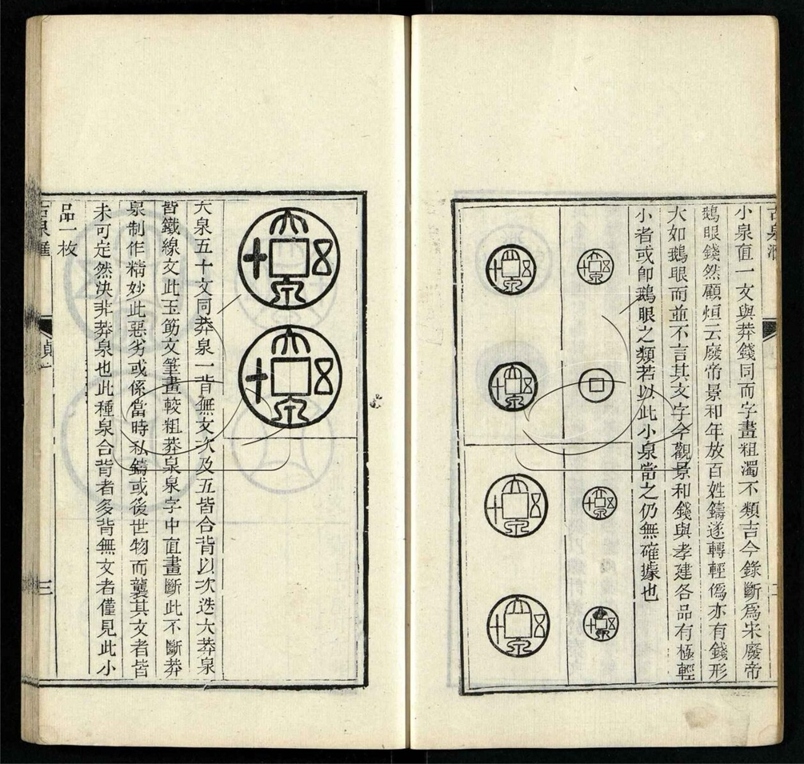 小泉直一文與莽錢同而字畫粗濁不類吉今錄斷爲宋廢帝
鵝眼錢然顧烜云廢帝景和年放百姓鑄遂轉輕僞亦有錢形
大如鵝眼而並不言其文字今觀景和錢與孝建各品有極輕
小者或卽鵝眼之類若以此小泉當之仍無確據也
大泉五十文同莽泉一背無文次及五皆合背以次迭大莽泉
皆鐵線文此玉筯文筆畫較粗莽泉泉字中直畫斷此不斷莽
泉制作精妙此惡劣或係當時私鑄或後世物而襲其文者皆
未可定然決非莽泉也此種泉合背者多背無文者僅見此小
品一枚
三